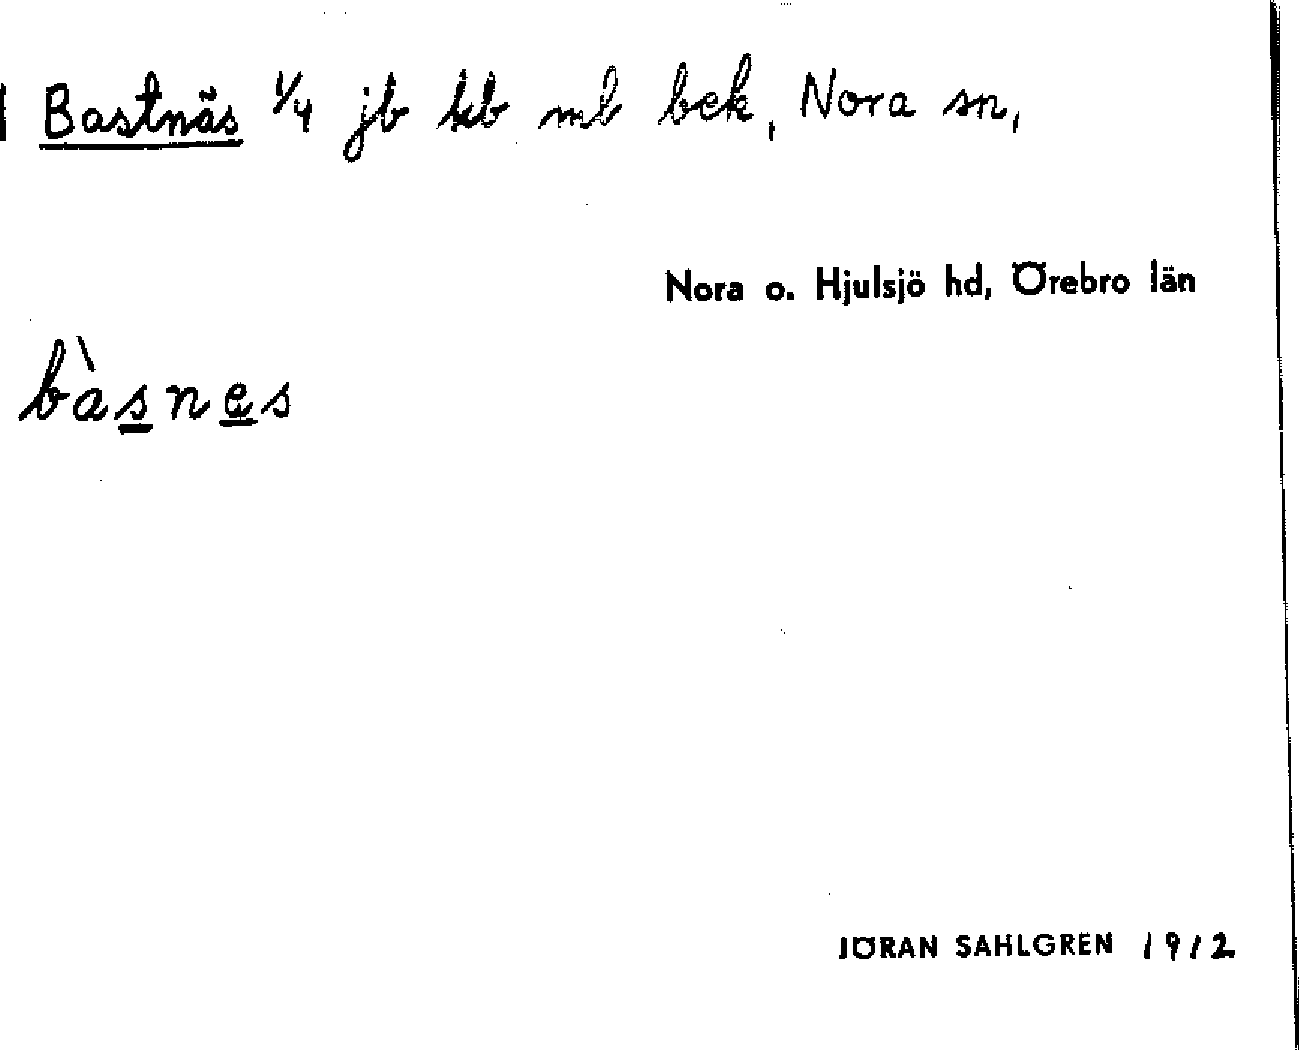 Bastnäs 1/4 jb kb ml bek, Nora sn,
Nora o. Hjulsjö hd, Örebro län
bàsnes
JÖRAN SAHLGREN 1912